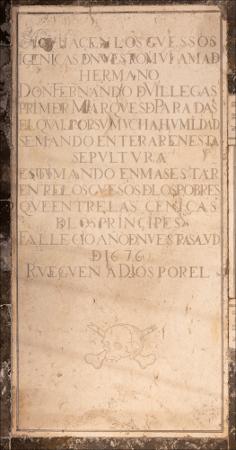 AQUI IACEN LOS GUESSOS
I CENICAS D NUESTRO MUI AMAD
HERMANO
DON FERNANDO D VILLEGAS
PRIMER MARQUES D PARADAS
EL QUAL POR SU MUCHA HUMILDAD
SE MANDO ENTERAR EN ESTA
SEPULTURA
ESTIMANDO EN MAS ESTAR
ENTRE LOS GUESOS D LOS POBRES
QUE ENTRE LAS CENICAS
D LOS PRINCIPES
FALLECIO AÑO D NUESTRA SAUD
D 1676
RUEGUEN A DIOS POR EL